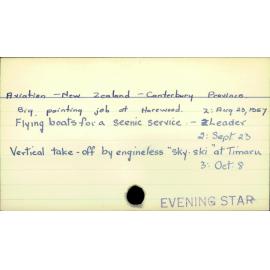 Aviation - New Zealand - Canterbury Province
Big painting job at Harewood. 2: Aug 23, 1957
Flying boats for a scenic service. - Leader
2: Sept 23
Vertical take-off by engineless "sky-ski" at Timaru
3: Oct 8
EVENING STAR